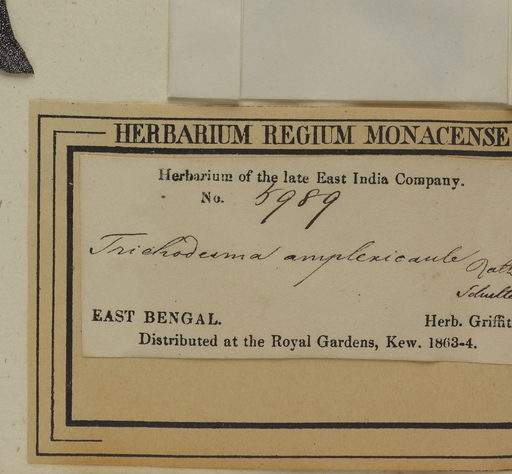 HERBARIUM REGIUM MONACENSE
Herbarium of the late East India Company.
No. 5989
Trichodesma amplexicaule
EAST BENGAL. Herb. Griffit
Distributed at the Royal Gardens, Kew. 1863-4.